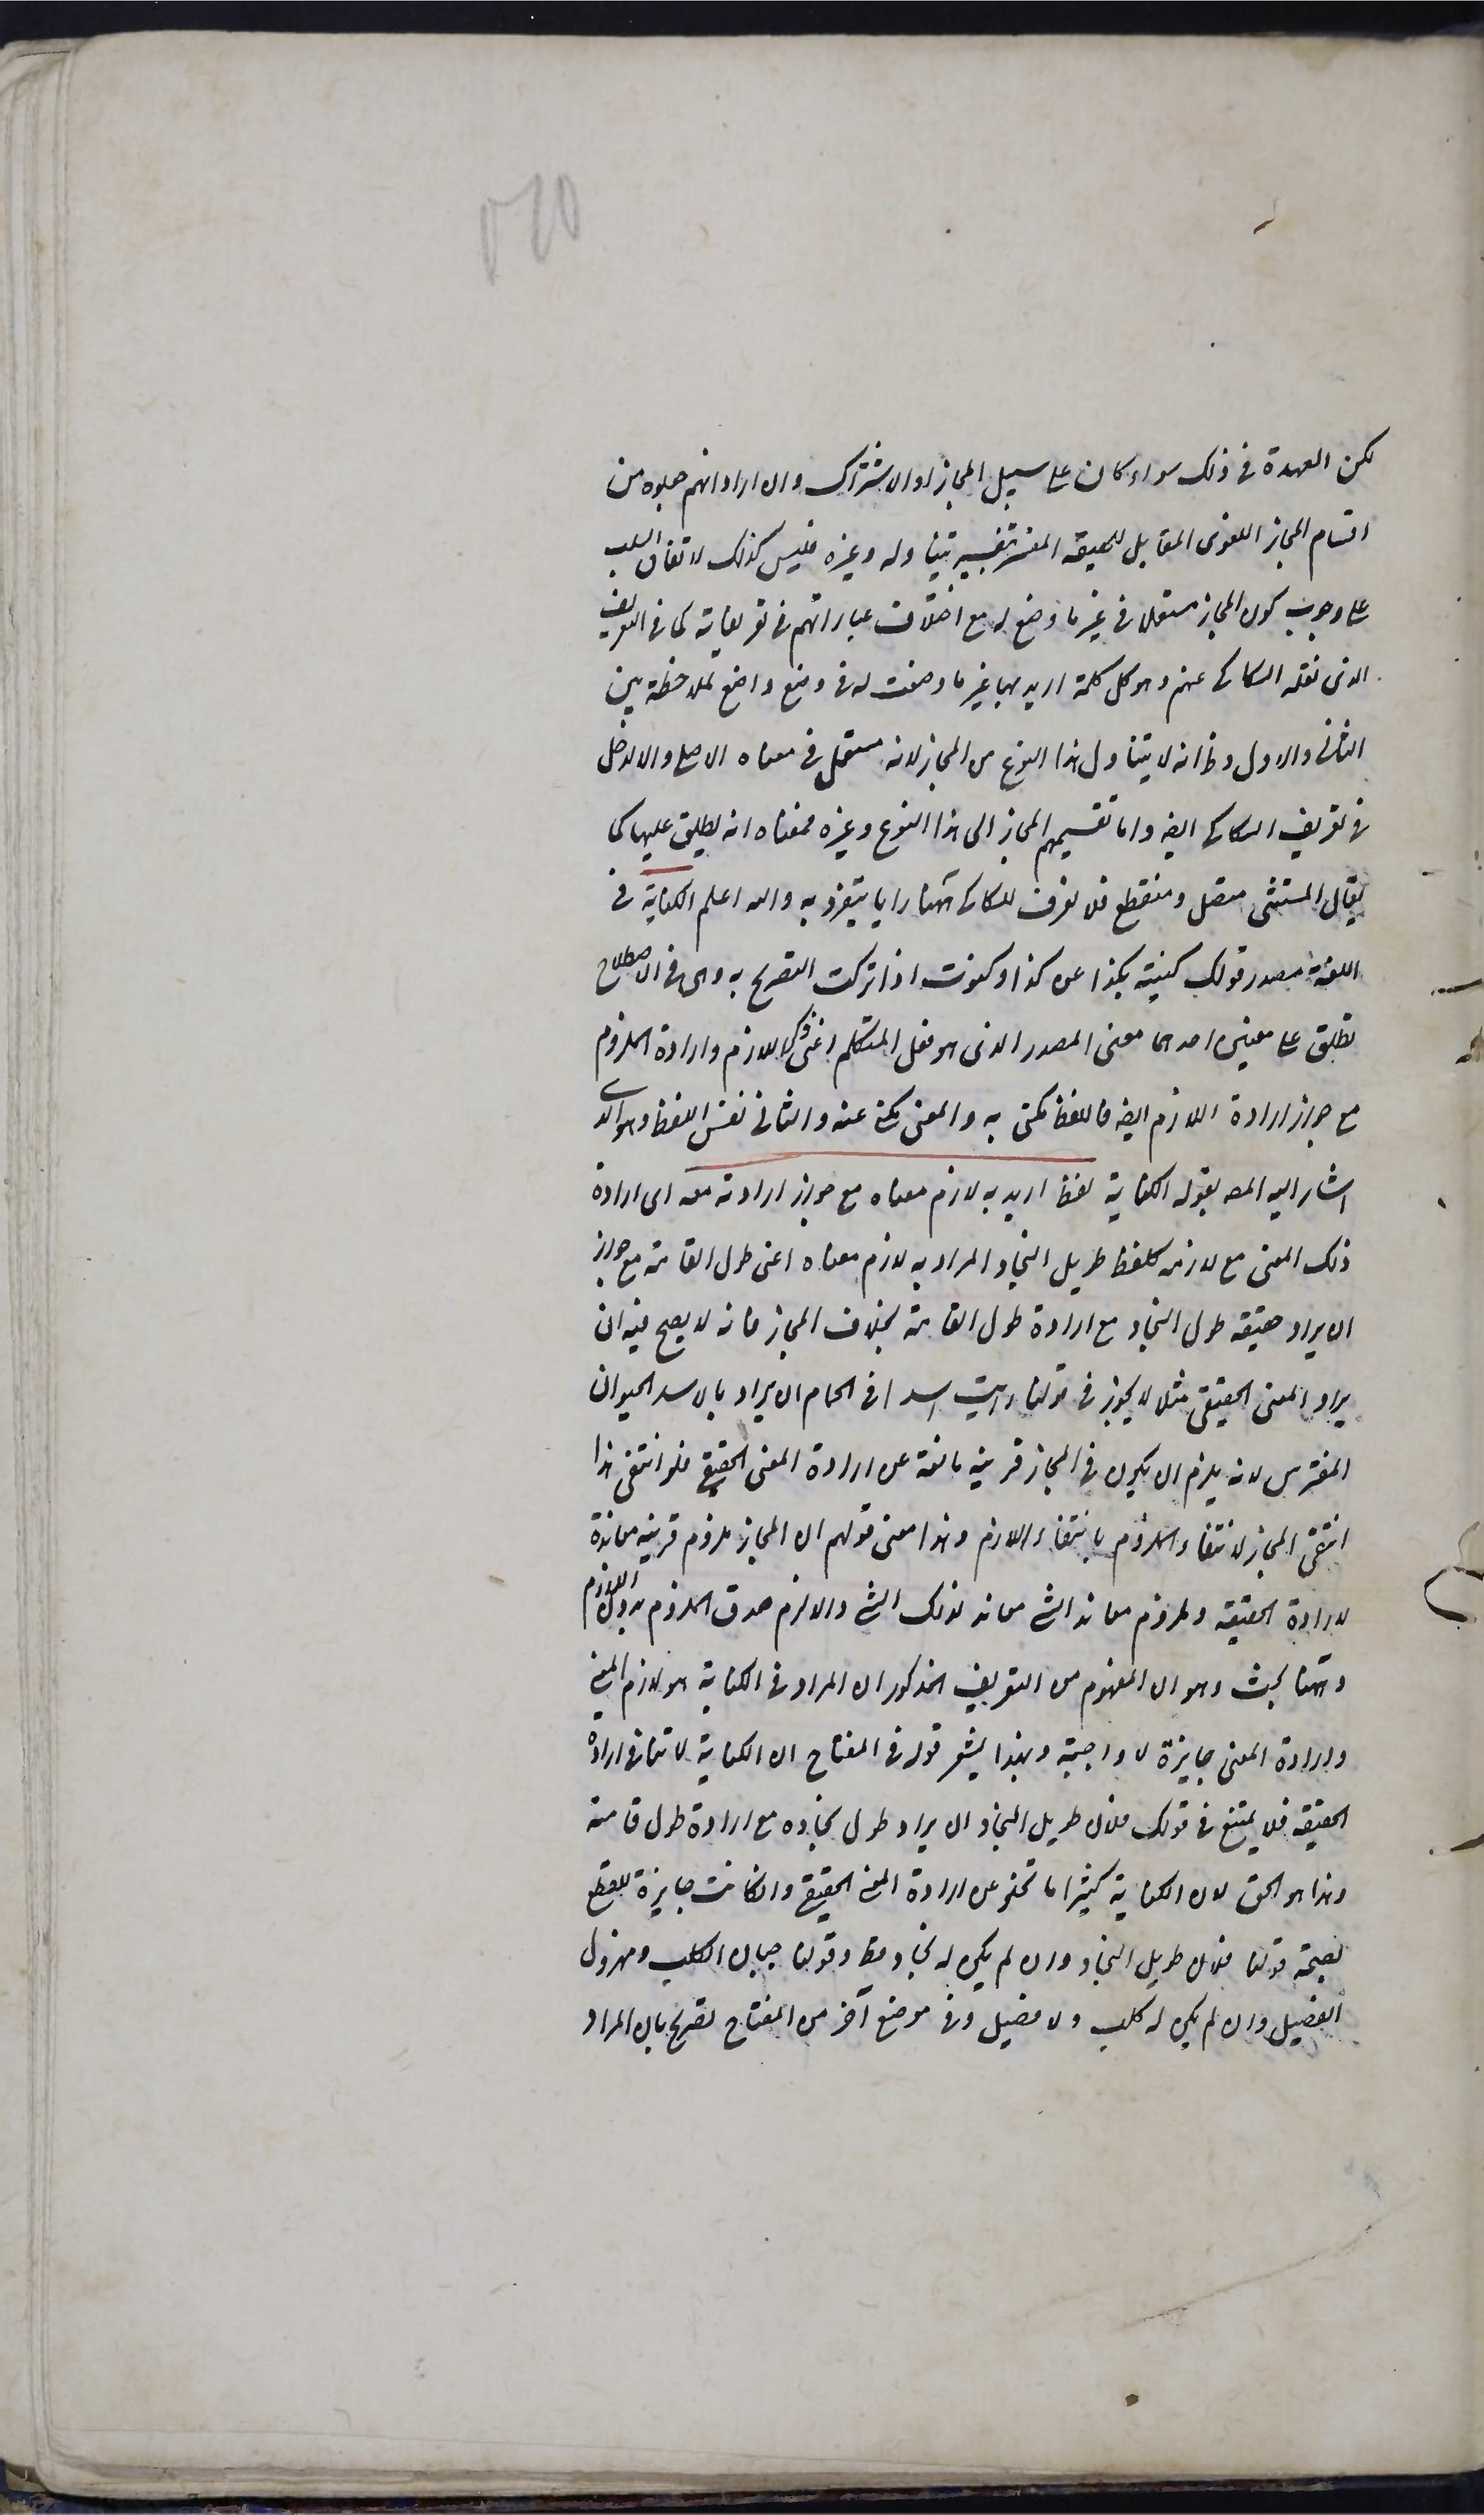 لكن العهدة فى ذلك سواء كان على سبيل المجاز او الاشتراك وان اراد انهم جعلوه من
اقسام المجاز اللغوى المقابل للحقيقه المفسر بتفسير يتناوله وغيره فليس كذلك لاتفاق السلف
على وجوب كون المجاز مستعملا فى غير ما وضع له مع اختلاف عباراتهم فى تعريفاته كما فى التعريف
الذى نقله السكاكى عنهم وهو كل كلمة اريد بها غير ما وضعت له فى وضع واضع لملاحظة بين
الثانى والاول وظ انه لا يتناول هذا النوع من المجاز لانه مستعمل فى معناه الاصلى والا لدخل
فى تعريف السكاكى ايضه واما تقسيمهم المجاز الى هذا النوع وغيره فمعناه انه يطلق عليها كما
يقال المستثنى متصل ومنقطع فلا نعرف للسكاكى ههنا رايا يتفرد به والله اعلم الكناية فى
اللغة مصدر قولك كنيته بكذا عن كذا وكنوت اذا تركت التصريح به وهى فى الاصطلاح
تطلق على معنيين احدهما معنى المصدر الذى هو فعل المتكلم اعنى ذكر اللازم وارادة الملزوم
مع جواز ارادة اللازم ايضه فاللفظ مكنى به والمعنى مكنى عنه والثانى نفس اللفظ وهو الذى
اشار اليه المصه بقوله الكناية لفظ اريد به لازم معناه مع جواز ارادته معه اى ارادة
ذلك المعنى مع لازمه كلفظ طويل النجاد المراد به لازم معناه اعنى طول القامة مع جواز
ان يراد حقيقه طول النجاد مع ارادة طول القامة بخلاف المجاز فانه لا يصح فيه ان
يراد المعنى الحقيقى مثلا لا يجوز فى قولنا رايت اسدا فى الحمام ان يراد بالاسد الحيوان
المفترس لانه يلزم ان يكون فى المجاز قرينة مانعة عن ارادة المعنى الحقيقى فلو انتفى هذا
انتفى المجاز لانتفاء الملزوم بانتفاء اللازم وهذا معنى قولهم ان المجاز ملزوم قرينه معاندة
لارادة الحقيقه وملزوم معاند الشئ معاند لذلك الشئ والا لزم صدق الملزوم بدون اللازم
وههنا بحث وهو ان المفهوم من التعريف المذكور ان المراد فى الكناية هو لازم المعنى
وارادة المعنى جايزة لا واجبة وبهذا يشعر قوله فى المفتاح ان الكناية لا تنافى ارادة
الحقيقه فلا يمتنع فى قولك فلان طويل النجاد ان يراد طول نجاده مع ارادة طول قامته
وهذا هو الحق لان الكناية كثيرا ما تخلو عن ارادة المعنى الحقيقى وان كانت جايزة للقطع
بصحة قولنا فلان طويل النجاد وان لم يكن له نجاد قط وقولنا جبان الكلب ومهزول
الفصيل وان لم يكن له كلب ولا فصيل وفى موضع آخر من المفتاح تصريح بان المراد